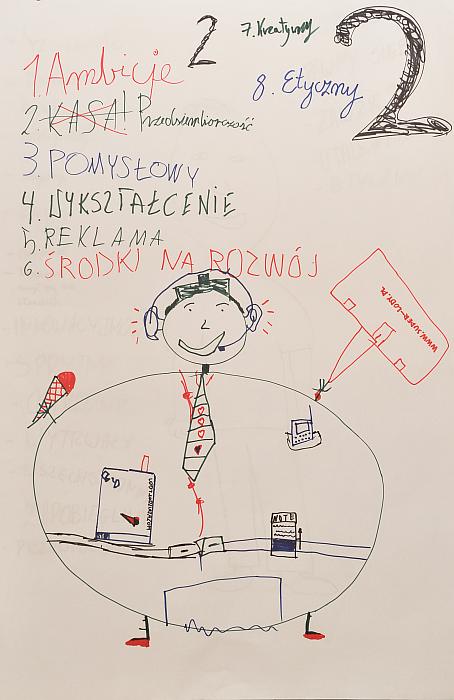 2
7. Kreatywny
2
1. Ambicje
8. Etyczny
2. KASA! Przedsiembiorczość
3. POMYSŁOWY
4. WYKSZTAŁCENIE
5. REKLAMA
6. ŚRODKI NA ROZWÓJ
WWW.SUPER-LODY.PL
NOTE